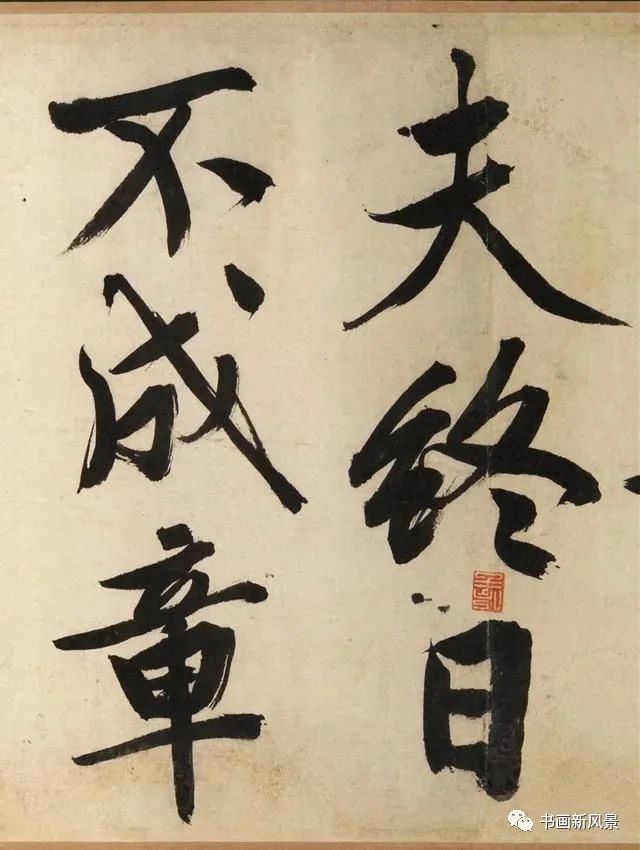 夫终日
不成章
书画新风景